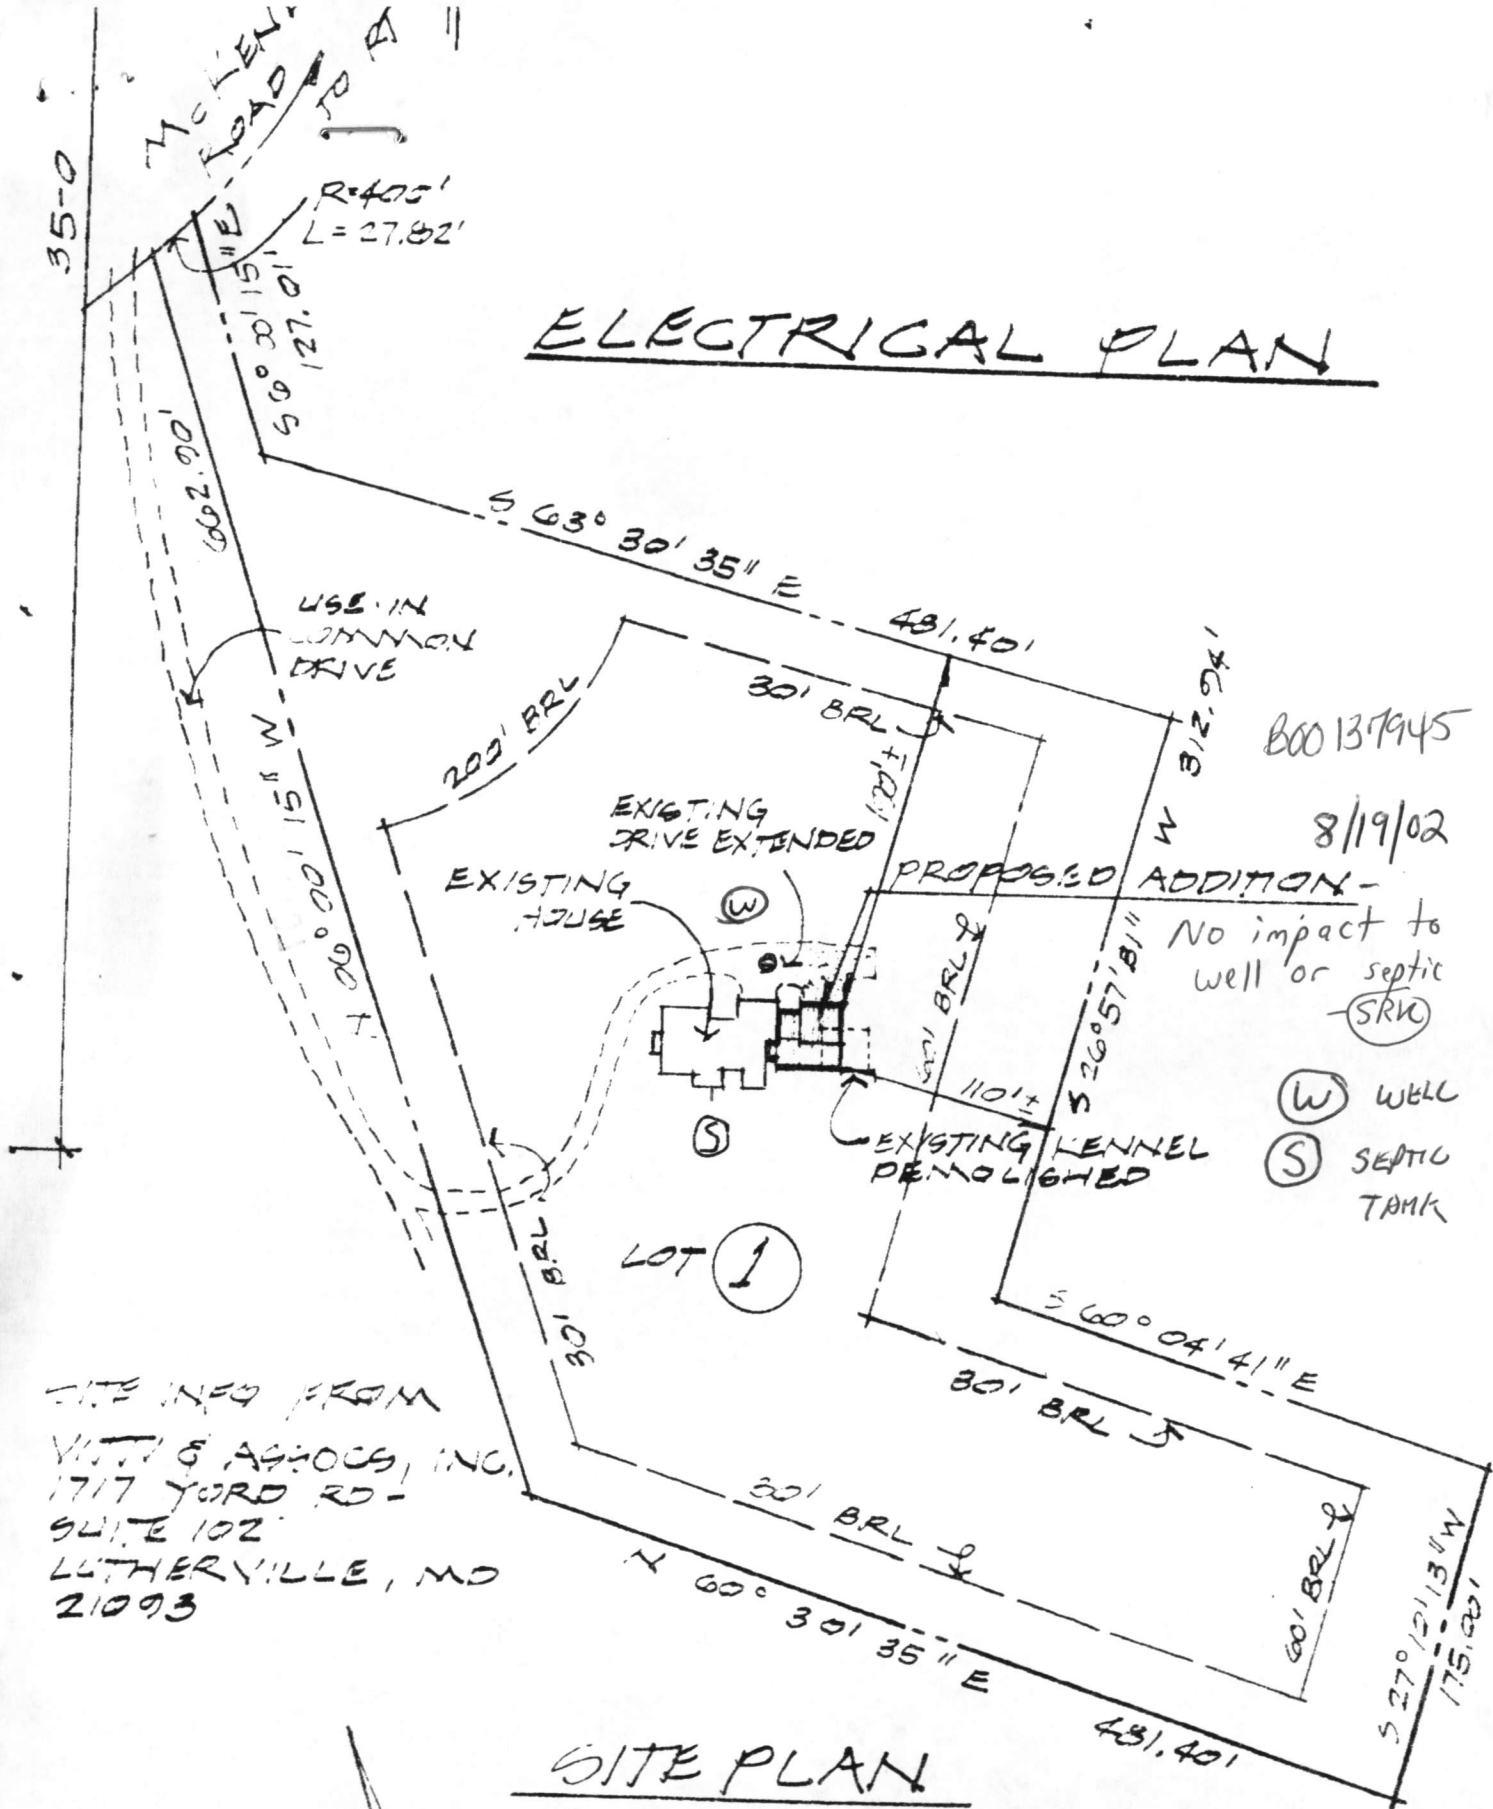 ROAD
35-0
R=405'
L=27.82'
127.01'
ELECTRICAL PLAN
662.90'
S 63° 30' 35" E
481.40'
USE-IN
COMMON
DRIVE
200' BRL
30' BRL
100'±
312.94'
W
B00137945
8/19/02
EXISTING
DRIVE EXTENDED
PROPOSED ADDITION-
EXISTING
HOUSE
W
No impact to
well or septic
-SRK
60' BRL
S 26° 57' 81"
110'±
W WELL
S
S SEPTIC
TANK
EXISTING KENNEL
DEMOLISHED
30' BRL
LOT 1
S 60° 04' 41" E
30' BRL
SITE INFO FROM
VITTI & ASSOCS, INC.
1717 YORD RD-
SUITE 102
LUTHERVILLE, MD
21093
30' BRL
60' BRL
175.00'
N 60° 30' 35" E
481.40'
SITE PLAN